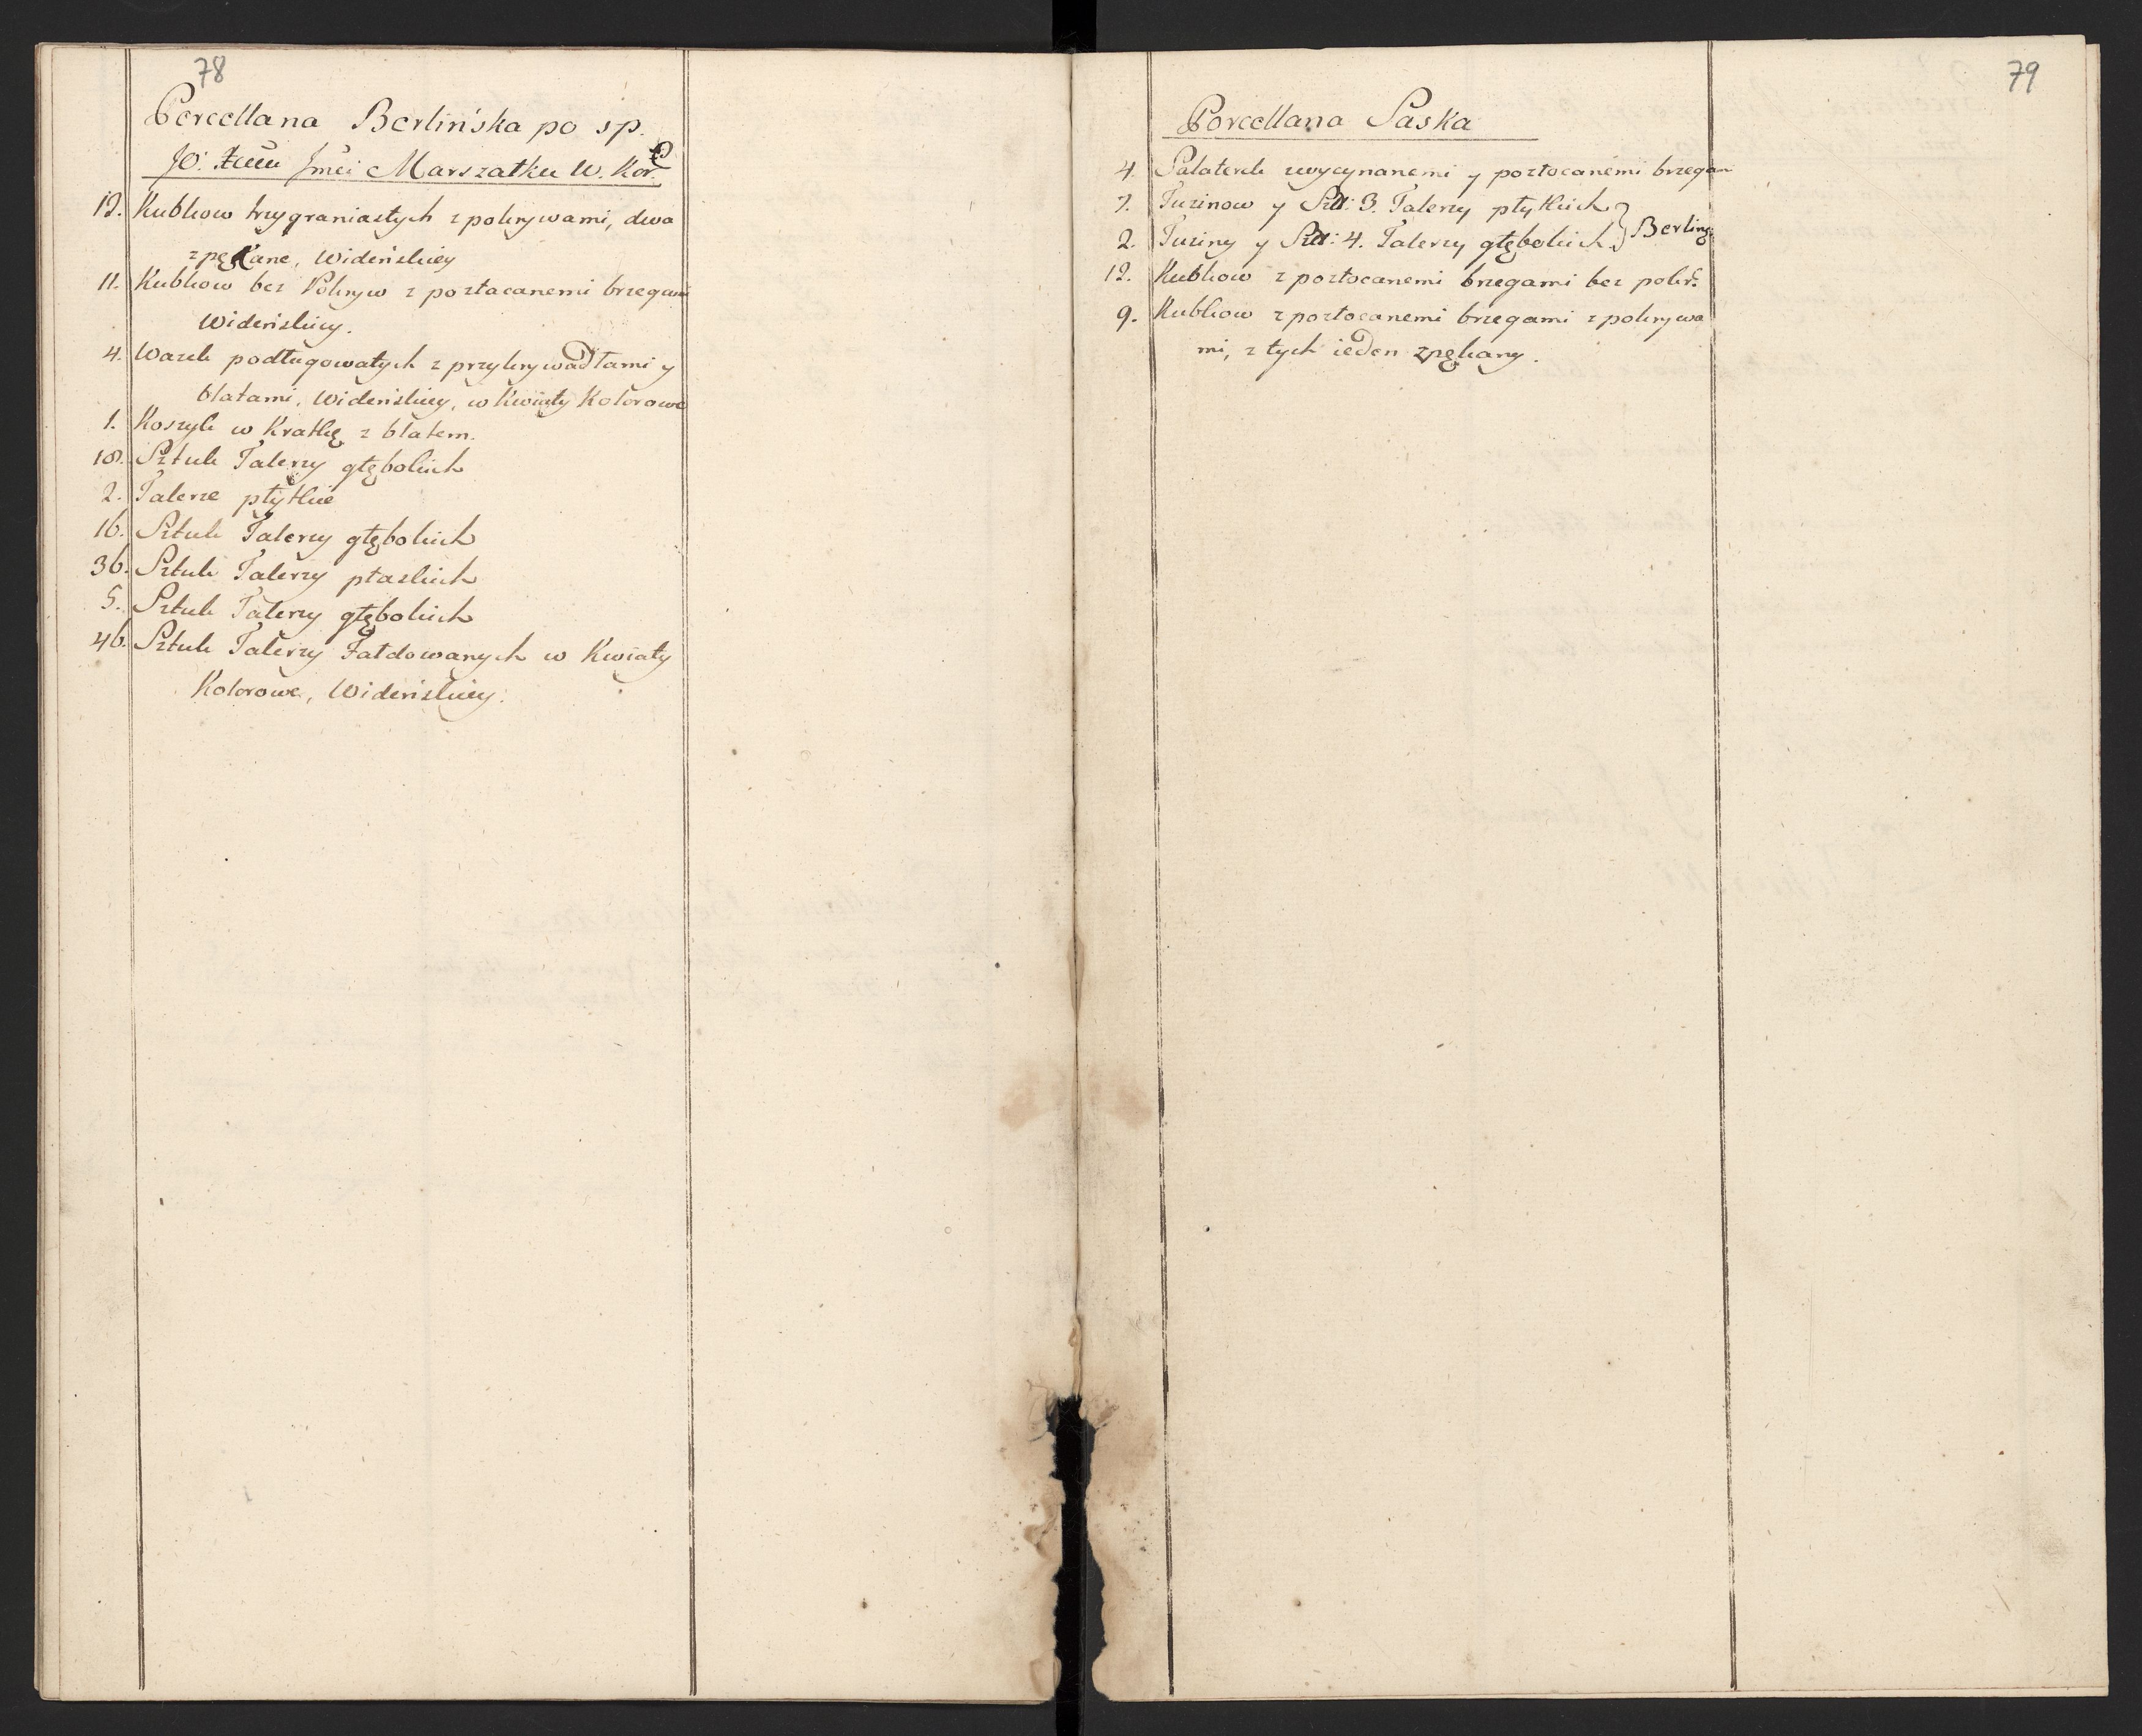 78
Porcellana Berlińska po sp.
JO: Jmci Marszałku W. Kor:
12. Kubkow trzygraniastych z pokrywami, dwa
zpękane, Wideńskiey
11. Kubkow bez Pokryw z pozłacanemi brzegami
Wideńskiey.
4. Wazek podługowatych z przykrywadłami y
blatami, Wideńskiey, w Kwiaty Kolorowe
1. Koszyk w Kratkę z blatem.
18. Sztuk Talerzy głębokich
2. Talerze płytkie
16. Sztuk Talerzy głębokich
36. Sztuk Talerzy płaskich
5. Sztuk Talerzy głębokich
46. Sztuk Talerzy Fałdowanych w Kwiaty
Kolorowe, Wideńskiey.
79
Porcellana Saska
4. Salaterek zwycynanemi y pozłocanemi brzegam
7. Tuzinow y Szt: 3. Talerzy płytkich
2. Tuziny y Szt: 4. Talerzy głębokich } Berling:
12. Kubkow z pozłocanemi brzegami bez pokr:
9. Kubkow z pozłocanemi brzegami z pokrywa
mi, z tych ieden zpękany.